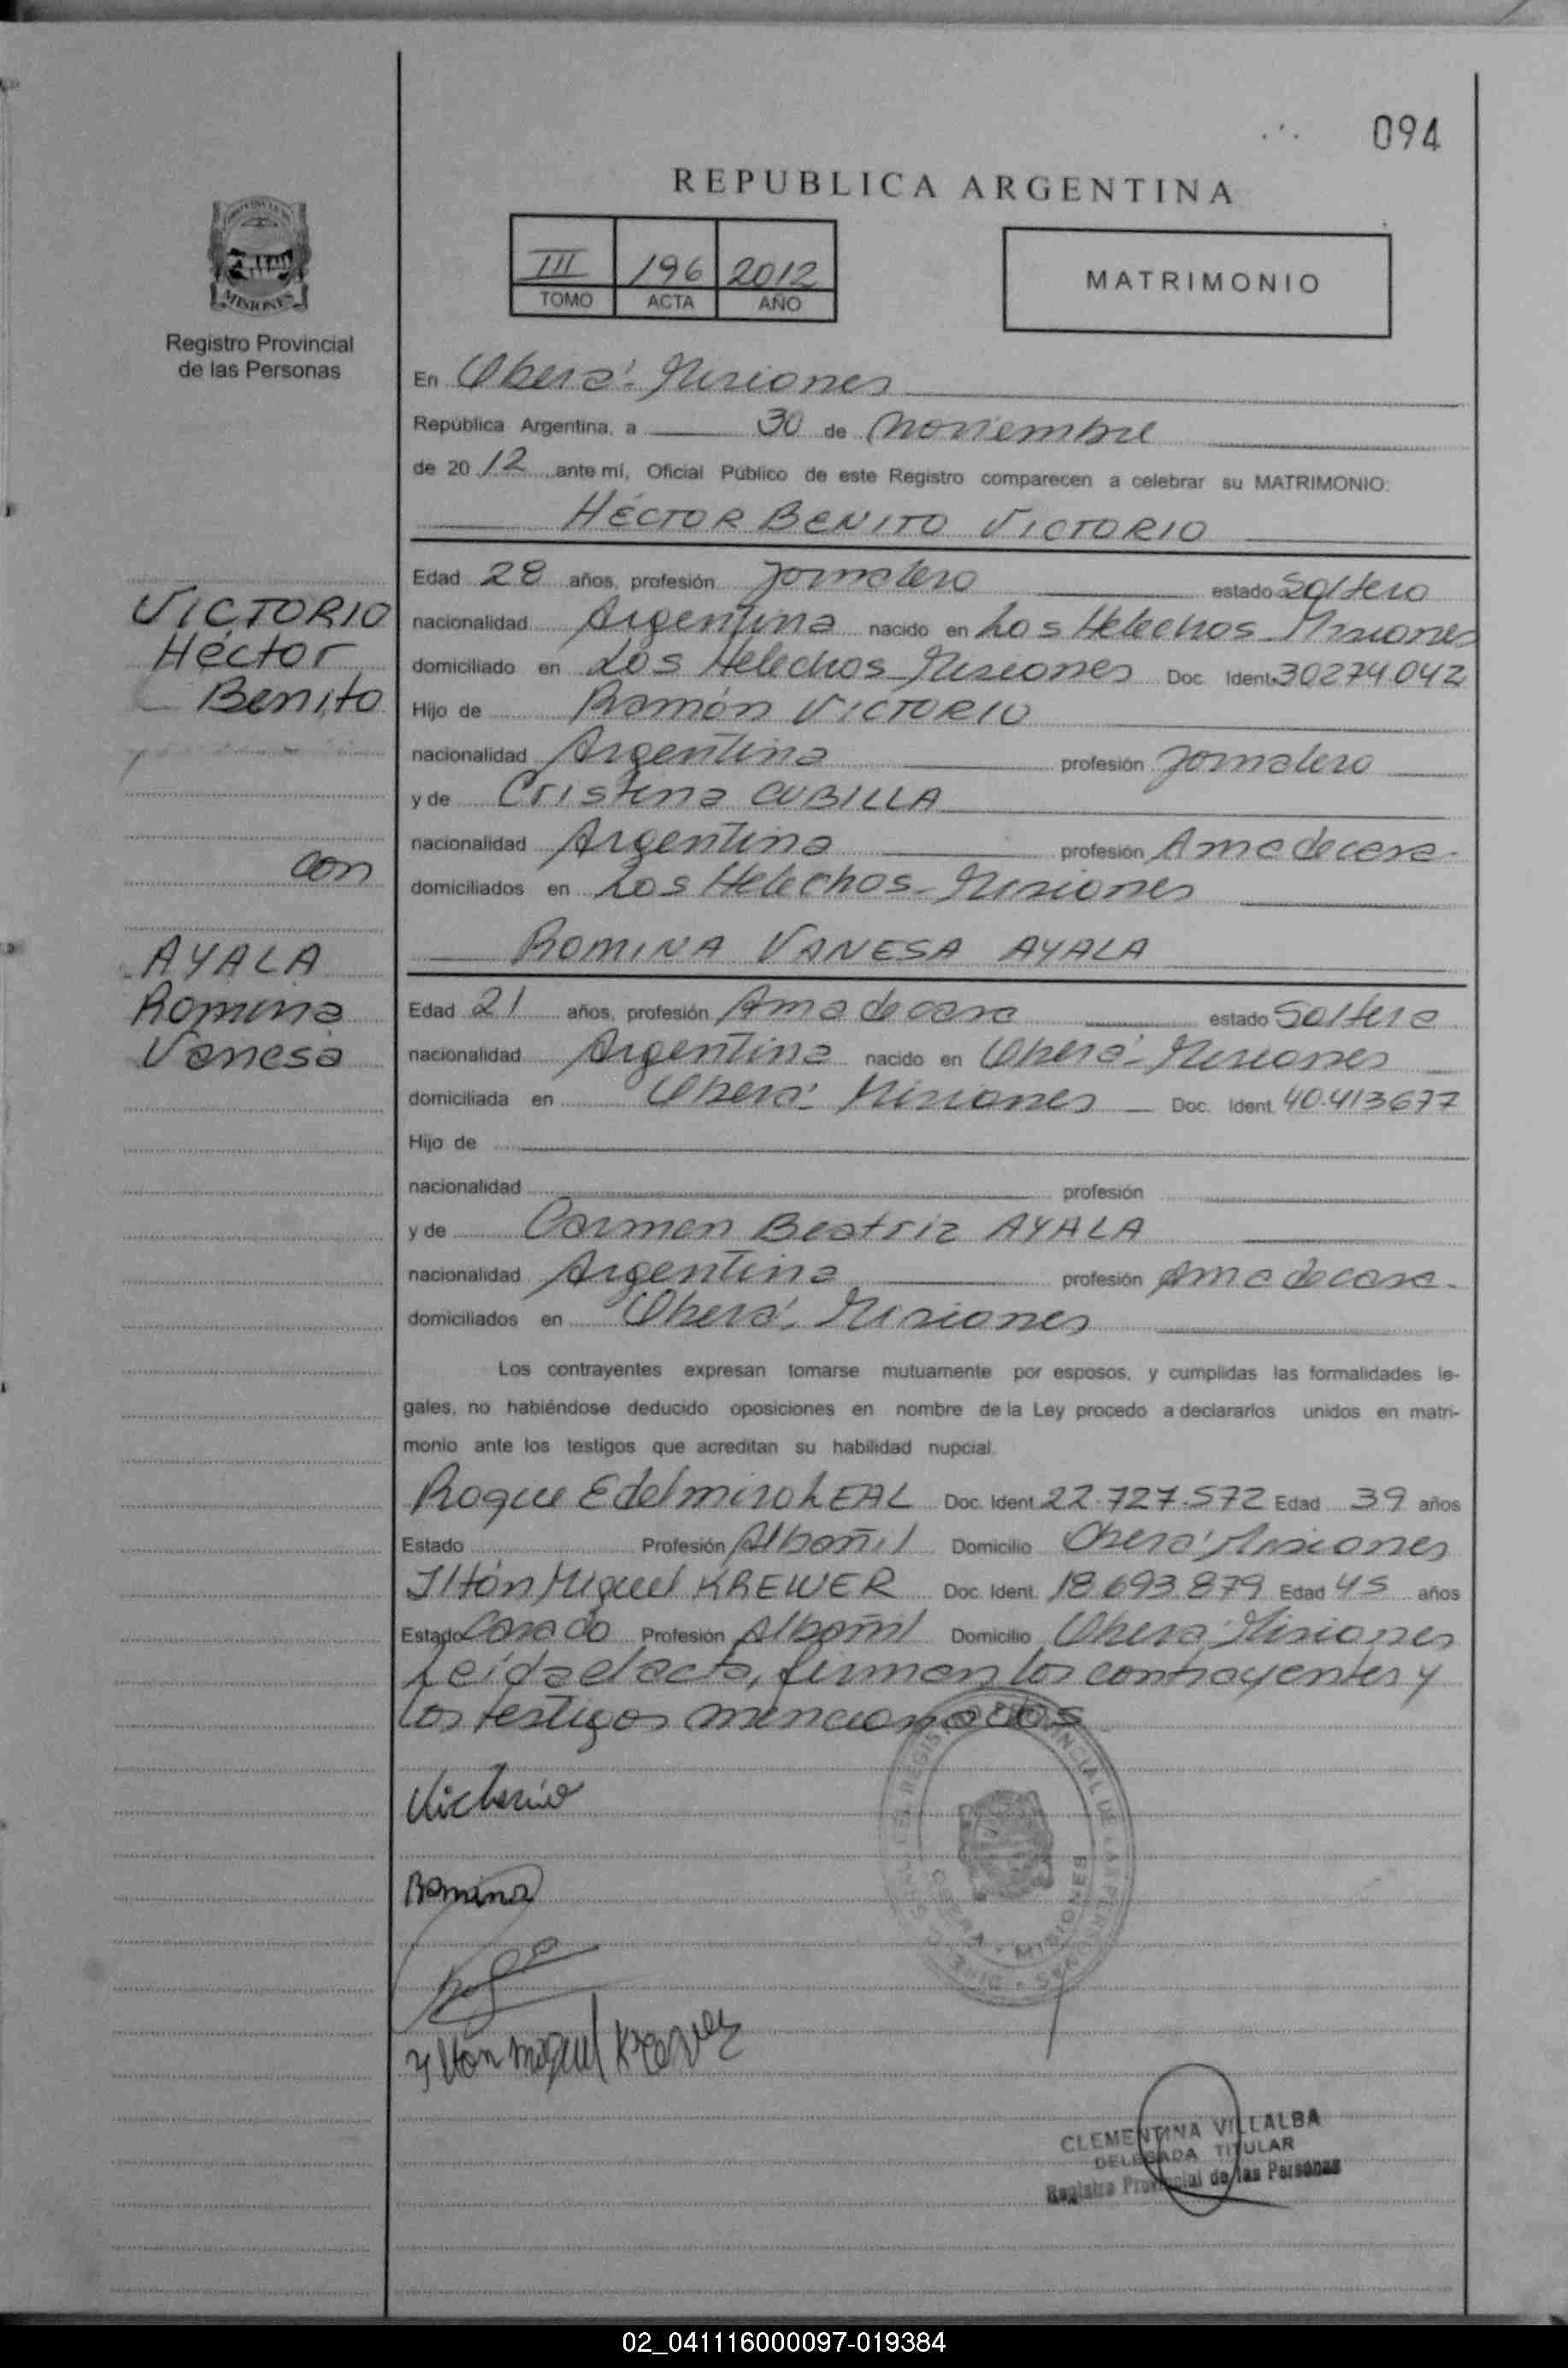 094
REPUBLICA ARGENTINA
III 196 2012
TOMO ACTA AÑO
MATRIMONIO
MISIONES
Registro Provincial
de las Personas
En Oberá - Misiones
República Argentina, a 30 de Noviembre
de 2012 ante mí, Oficial Público de este Registro comparecen a celebrar su MATRIMONIO:
HÉCTOR BENITO VICTORIO
Edad 28 años, profesión Jornalero estado Soltero
nacionalidad Argentina nacido en Los Helechos Misiones
domiciliado en Los Helechos Misiones Doc. Ident. 30274.042
Hijo de Ramón VICTORIO
nacionalidad Argentina profesión Jornalero
y de Cristina CUBILLA
nacionalidad Argentina profesión Ama de casa.
domiciliados en Los Helechos - Misiones
VICTORIO
Héctor
Benito
con
AYALA
Romina
Vanesa
ROMINA VANESA AYALA
Edad 21 años, profesión Ama de casa estado Soltera
nacionalidad Argentina nacido en Oberá - Misiones
domiciliada en Oberá - Misiones Doc. Ident. 40.413677
Hijo de
nacionalidad profesión
y de Carmen Beatriz AYALA
nacionalidad Argentina profesión Ama de casa.
domiciliados en Oberá - Misiones
Los contrayentes expresan tomarse mutuamente por esposos, y cumplidas las formalidades le-
gales, no habiéndose deducido oposiciones en nombre de la Ley procedo a declararlos unidos en matri-
monio ante los testigos que acreditan su habilidad nupcial.
Roque Edelmiro LEAL Doc. Ident. 22.727.572 Edad 39 años
Estado Profesión Albañil Domicilio Oberá Misiones
Iltón Miguel KREWER Doc. Ident. 18.693.879 Edad 45 años
Estado Casado Profesión Albañil Domicilio Oberá Misiones
Leída el acta, firman los contrayentes y
los testigos mencionados
Victorio
Romina
Ylton miguel Krewer
CLEMENTINA VILLALBA
DELEGADA TITULAR
Registro Provincial de las Personas
02_041116000097-019384